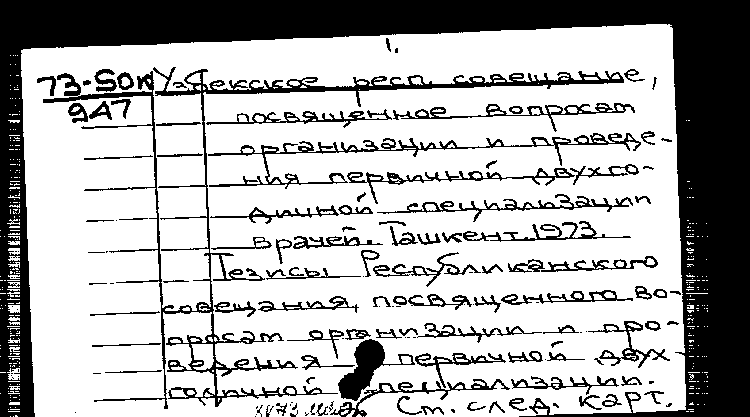 1.
73-SON У-бекское респ. совещание,
947 посвященное вопросам
организации и проведе-
ния первичной двухго-
дичной специализации
врачей. Ташкент. 1973.
Тезисы Республиканского
совещания, посвященного во-
просам организации и про-
ведения первичной двух-
годичной специализации.
См. след. карт.